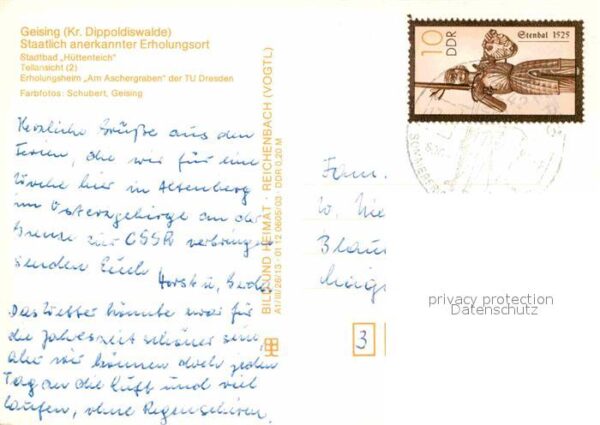 Geising (Kr. Dippoldiswalde)
Staatlich anerkannter Erholungsort
Stadtbad „Hüttenteich"
Teilansicht (2)
Erholungsheim „Am Aschergraben" der TU Dresden
Farbfotos: Schubert, Geising
Herzliche Grüße aus den
Ferien, die wir für eine
Woche hier in Altenberg
im Osterzgebirge an der
Grenze zur CSSR verbringen
senden Euch
Horst u.
Das Wetter könnte zwar für
die Jahreszeit schöner sein,
aber wir können doch jeden
Tag an die Luft und viel
laufen, ohne Regenschirm.
BILD UND HEIMAT · REICHENBACH (VOGTL)
A1/III/26/13 · 01 12 0605/03 DDR 0,20 M
10
DDR
Stendal 1525
Fam.
W. Me
Blau
3
privacy protection
Datenschutz